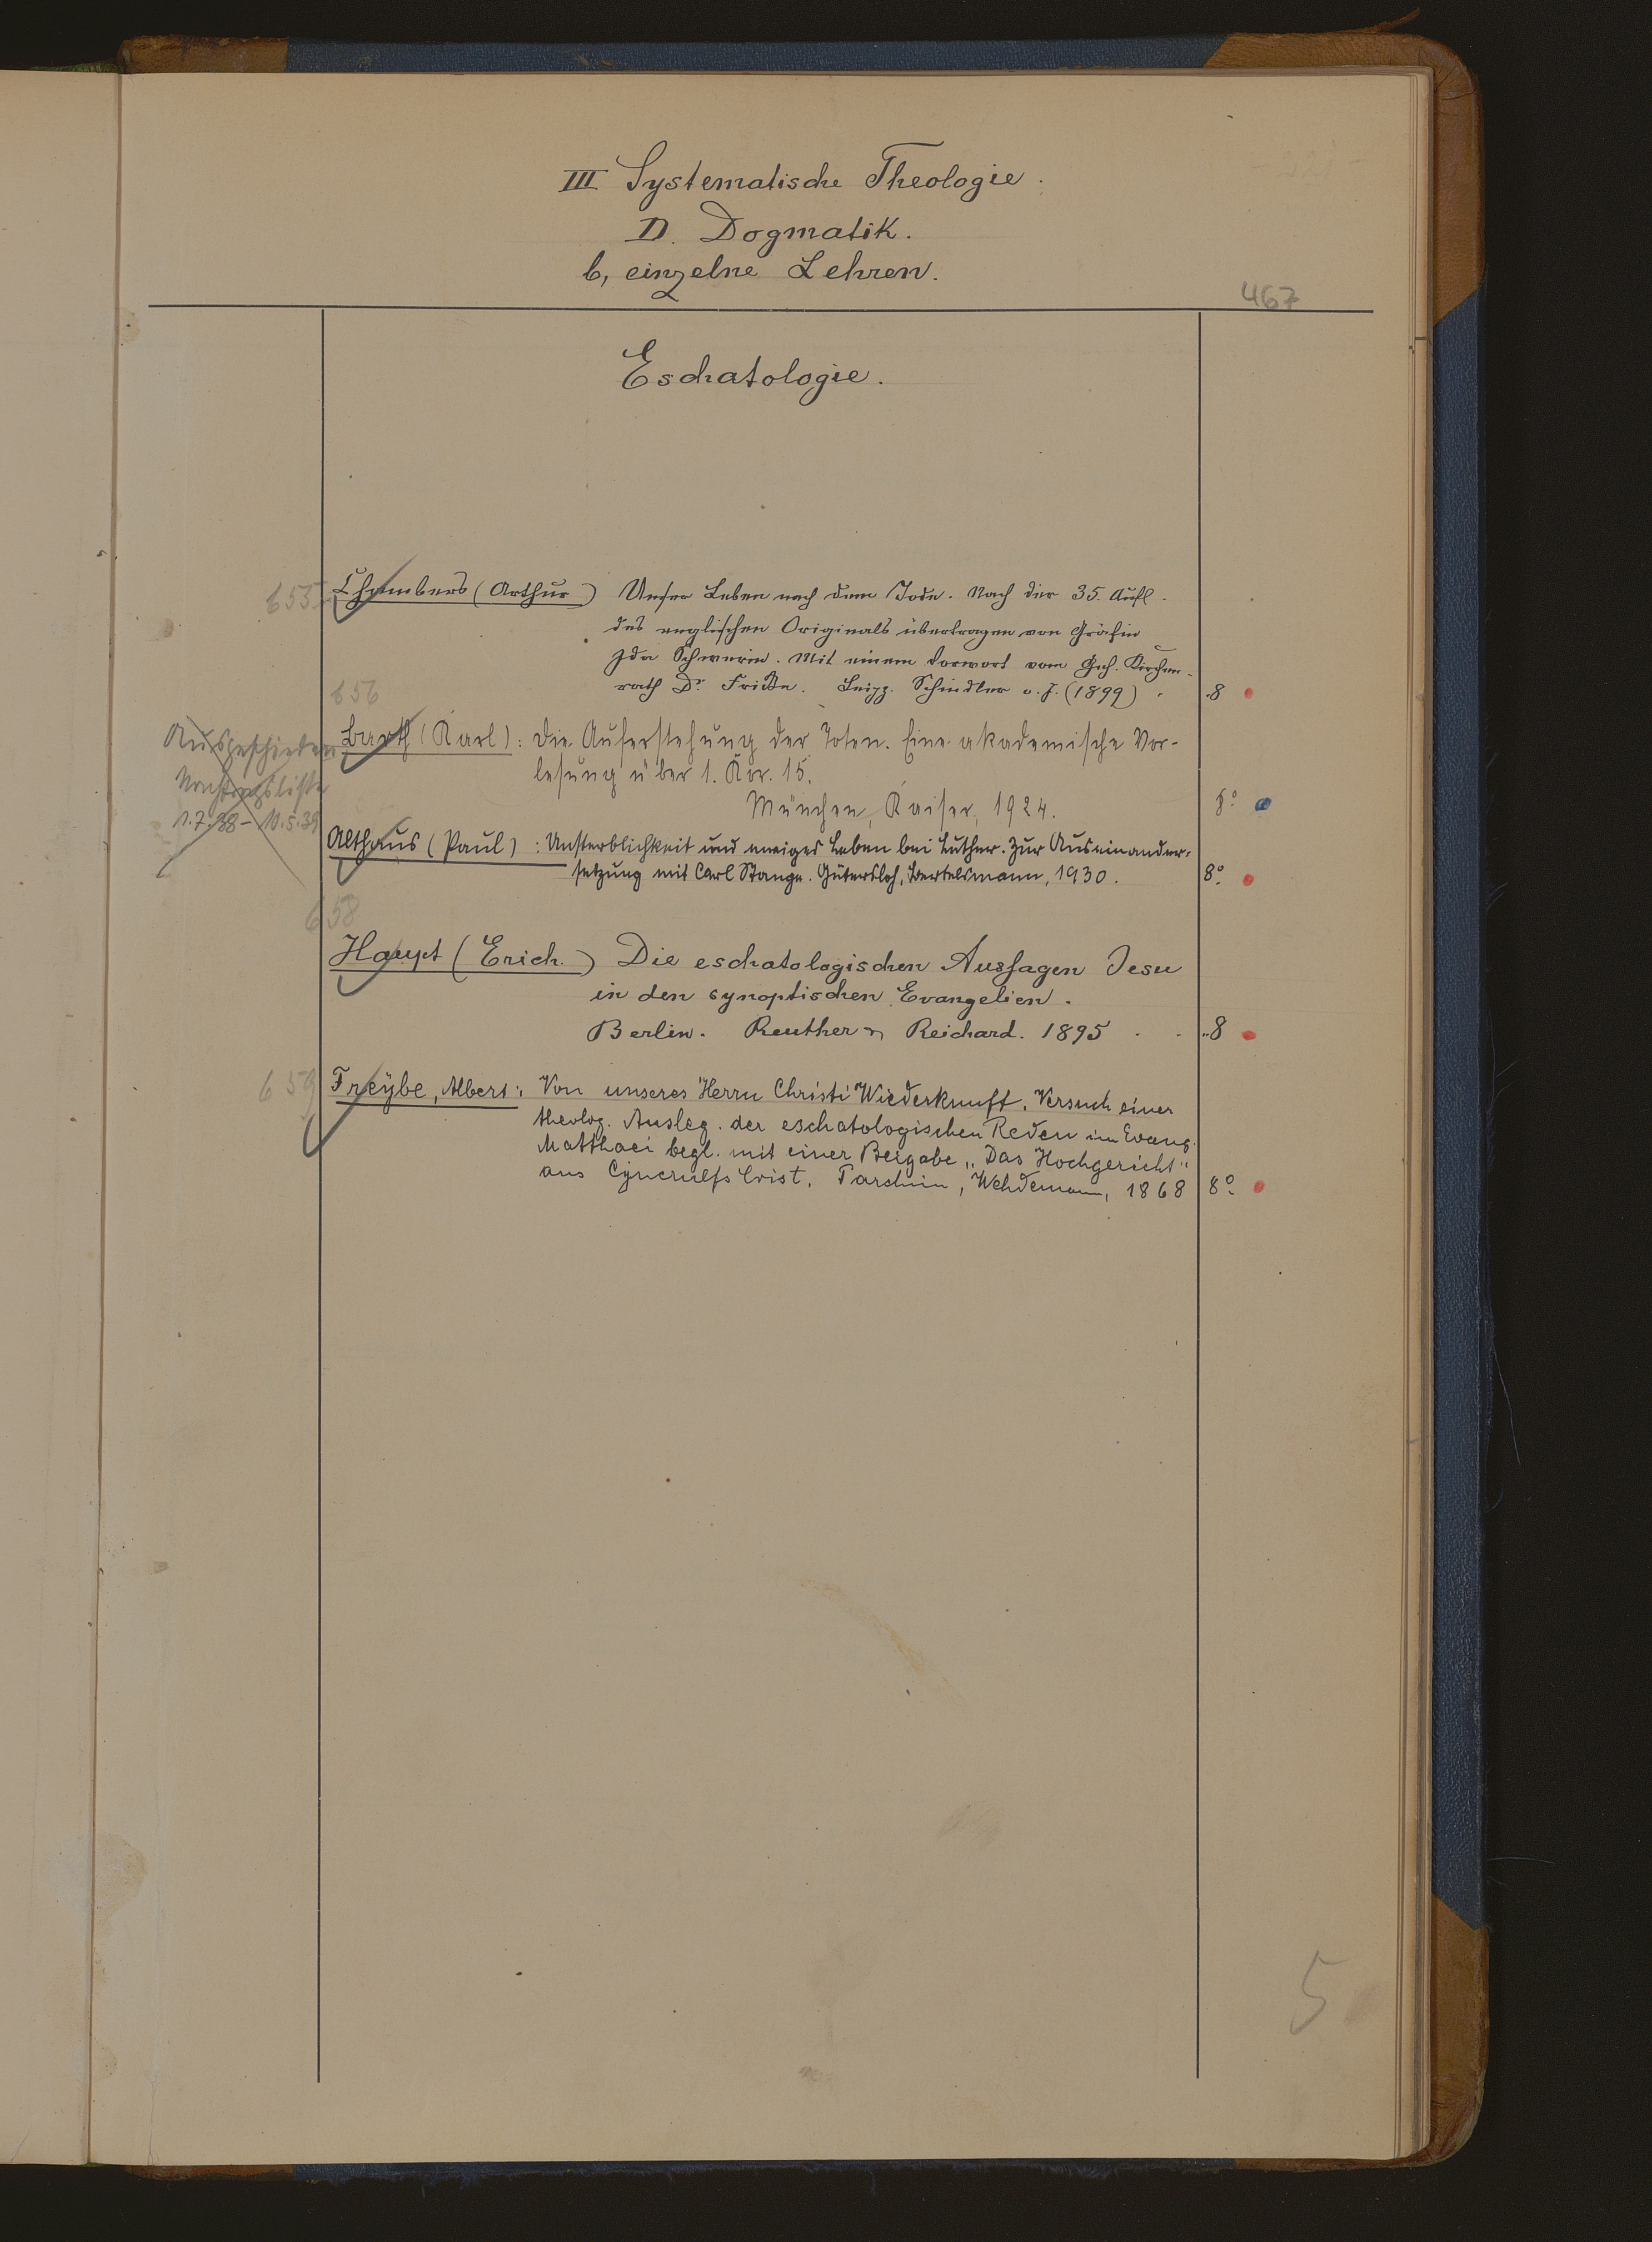 III Systematische Theologie.
D. Dogmatik.
b, einzelne Lehren.
467
Eschatologie.
655
Chambers (Arthur) Unser Leben nach dem Tode. Nach der 35. Aufl.
des englischen Originals übertragen von Gräfin
Ida Schwerin. Mit einem Vorwort vom Geh. Kirchen-
rath Dr. Fricke. Leipz. Schindler o. J. (1899) . 8
656
Ausgeschieden
Nachtragsliste
1.7.38 - 10.5.39
Barth (Karl): Die Auferstehung der Toten. Eine akademische Vor-
lesung über 1. Kor. 15.
München, Kaiser, 1924. 8°
Althaus (Paul): Unsterblichkeit und ewiges Leben bei Luther. Zur Auseinander-
setzung mit Carl Stange. Gütersloh, Bertelsmann, 1930. 8°
658
Haupt (Erich.) Die eschatologischen Aussagen Jesu
in den synoptischen Evangelien.
Berlin. Reuther & Reichard. 1895 . . 8
659
Freybe, Albert: Von unseres Herrn Christi Wiederkunft. Versuch einer
theolog. Ausleg. der eschatologischen Reden im Evang.
Matthaei begl. mit einer Beigabe „Das Hochgericht"
aus Cynevulfs Crist. Parchim, Wehdemann, 1868 8°
5